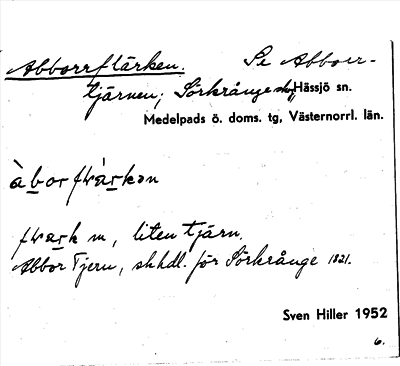 Abborrflärken. Se Abborr-
tjärnen; Sörkrånge sk., Hässjö sn.
Medelpads ö. doms. tg, Västernorrl. län.
m, liten tjärn.
Abbor Tjern, skhdl. för Sörkrånge 1821.
Sven Hiller 1952
6.